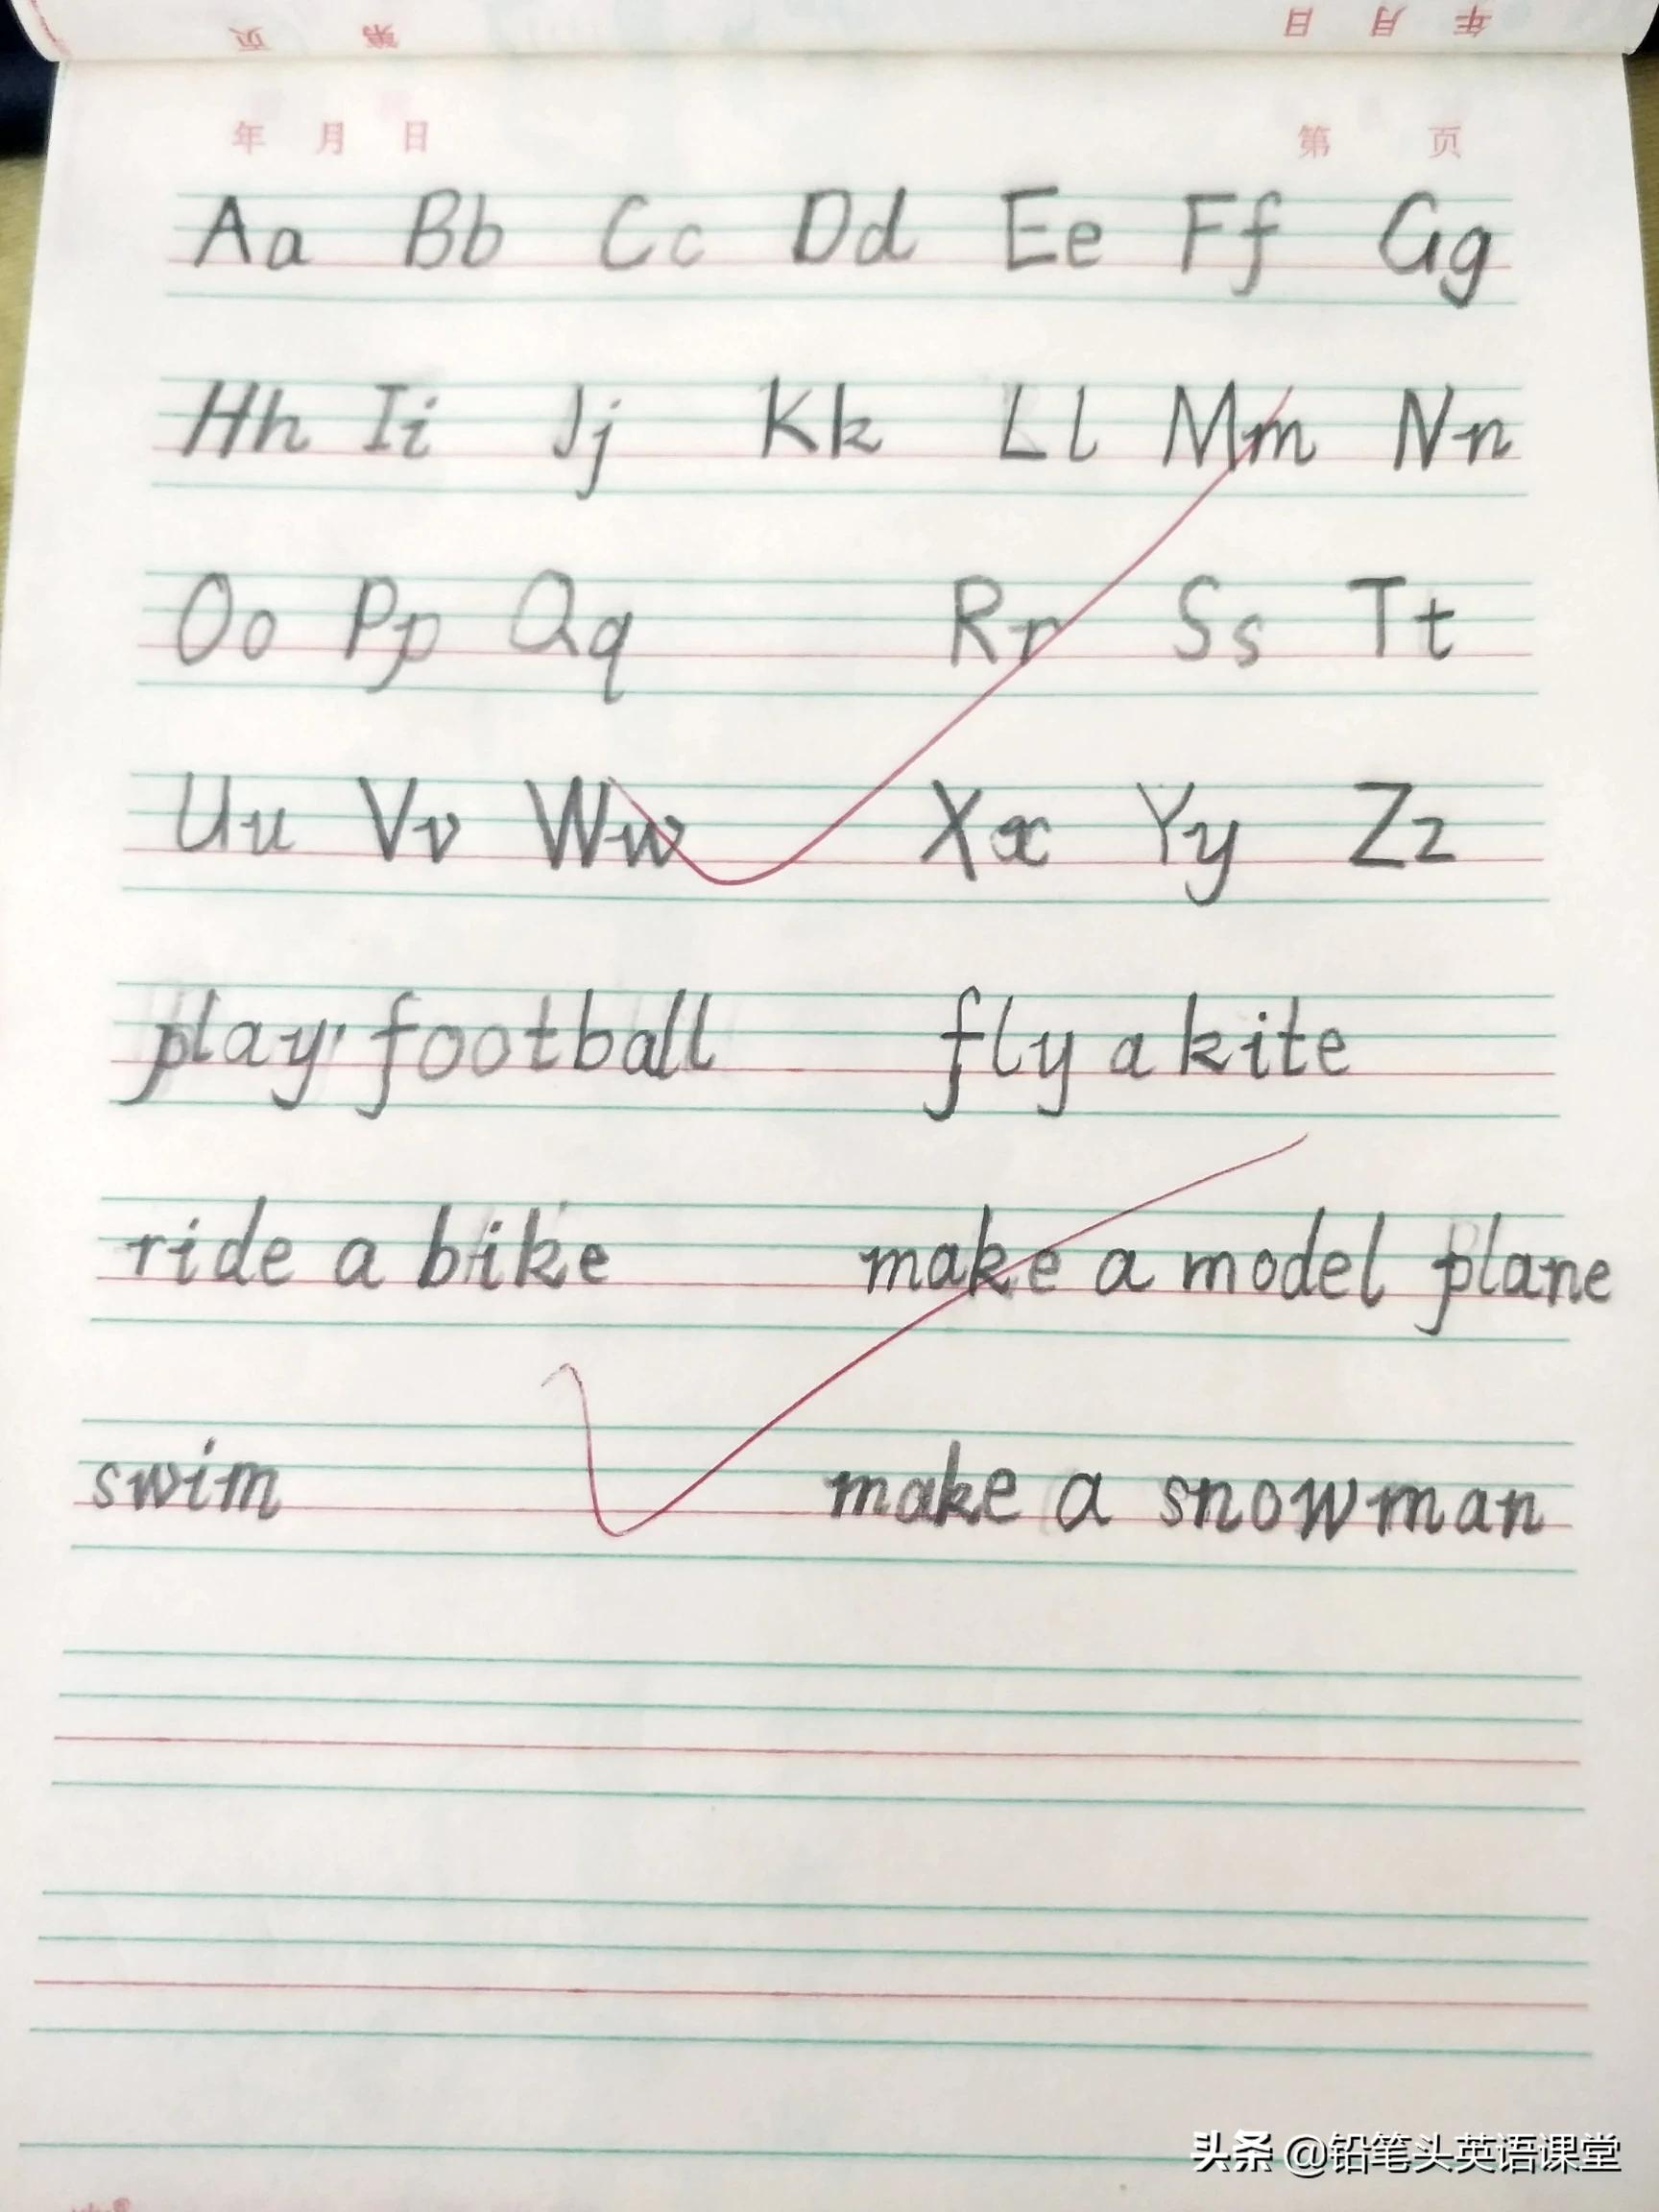 页 第 日 月 年
年 月 日 第 页
Aa Bb Cc Dd Ee Ff Gg
Hh Ii Jj Kk Ll Mm Nn
Oo Pp Qq Rr Ss Tt
Uu Vv Ww Xx Yy Zz
play football fly a kite
ride a bike make a model plane
swim make a snowman
头条 @铅笔头英语课堂